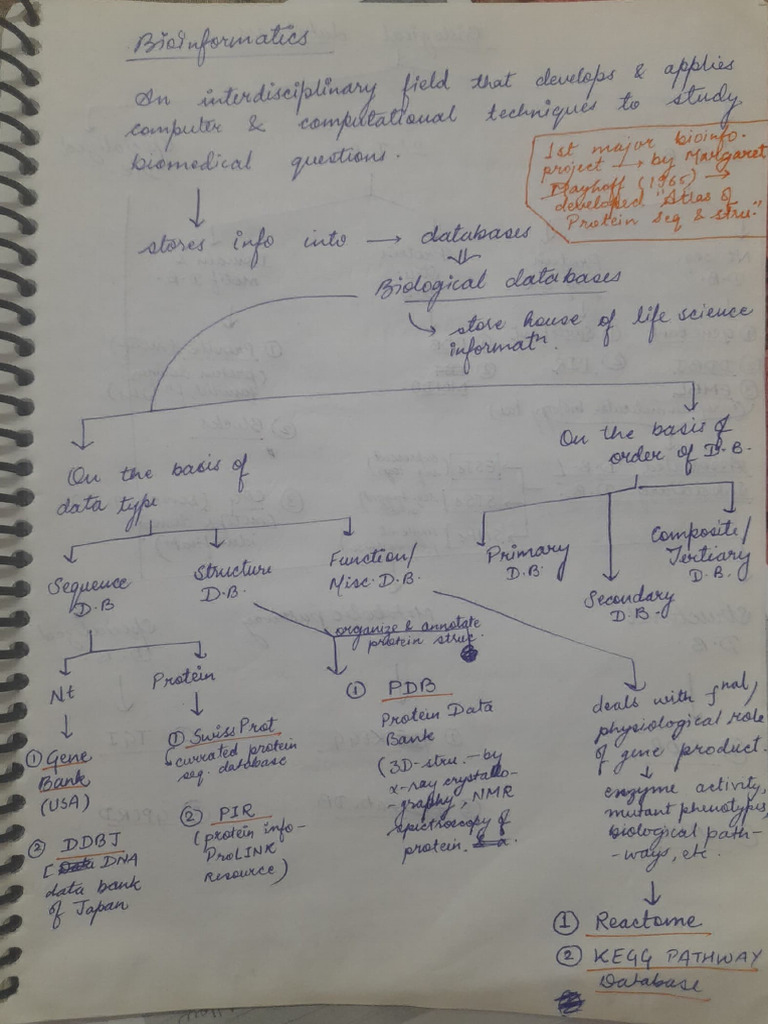 Bioinformatics
An interdisciplinary field that develops & applies
computer & computational techniques to study
biomedical questions.
1st major bioinfo.
project → by Margaret
Dayhoff (1965) →
developed "Atlas of
Protein Seq & stru."
stores info into → databases
Biological databases
store house of life science
informatn
On the basis of
data type
On the basis of
order of D.B.
Sequence
D.B
Structure
D.B.
Function/
Misc. D.B.
Primary
D.B.
Secondary
D.B.
Composite/
Tertiary
D.B.
organize & annotate
protein struc.
Nt
Protein
① Gene
Bank
(USA)
② DDBJ
[ DNA
data bank
of Japan
① SwissProt
currated protein
seq. database
② PIR
(protein info-
ProLINK
resource)
① PDB
Protein Data
Bank
(3D-stru. — by
x-ray crystallo-
-graphy, NMR
spectroscopy of
protein.
deals with fnal/
physiological role
of gene product.
enzyme activity,
mutant phenotypes,
biological path-
-ways, etc.
① Reactome
② KEGG PATHWAY
Database